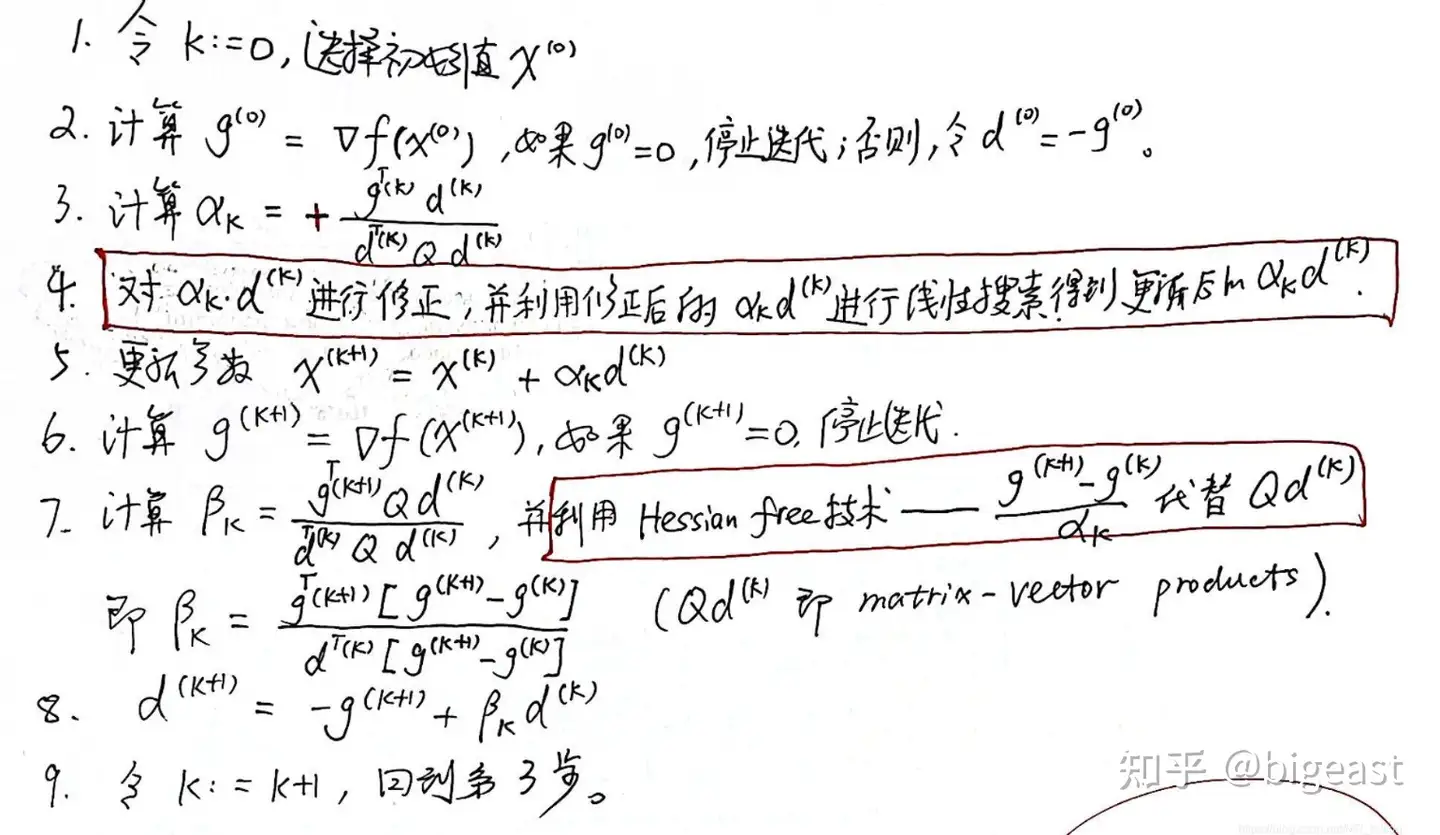 1. 令 k:=0, 选择初始值 x⁽⁰⁾
2. 计算 g⁽⁰⁾ = ∇f(x⁽⁰⁾), 如果 g⁽⁰⁾=0, 停止迭代; 否则, 令 d⁽⁰⁾=-g⁽⁰⁾。
3. 计算 αₖ = + gᵀ⁽ᵏ⁾ d⁽ᵏ⁾ / dᵀ⁽ᵏ⁾ Q d⁽ᵏ⁾
4. 对 αₖ·d⁽ᵏ⁾ 进行修正, 并利用修正后的 αₖd⁽ᵏ⁾ 进行线性搜索得到更新后的 αₖd⁽ᵏ⁾.
5. 更新参数 x⁽ᵏ⁺¹⁾ = x⁽ᵏ⁾ + αₖd⁽ᵏ⁾
6. 计算 g⁽ᵏ⁺¹⁾ = ∇f(x⁽ᵏ⁺¹⁾), 如果 g⁽ᵏ⁺¹⁾=0, 停止迭代.
7. 计算 βₖ = gᵀ⁽ᵏ⁺¹⁾ Q d⁽ᵏ⁾ / dᵀ⁽ᵏ⁾ Q d⁽ᵏ⁾, 并利用 Hessian free技术 —— (g⁽ᵏ⁺¹⁾-g⁽ᵏ⁾) / αₖ 代替 Qd⁽ᵏ⁾
即 βₖ = gᵀ⁽ᵏ⁺¹⁾ [g⁽ᵏ⁺¹⁾-g⁽ᵏ⁾] / dᵀ⁽ᵏ⁾ [g⁽ᵏ⁺¹⁾-g⁽ᵏ⁾] (Qd⁽ᵏ⁾ 即 matrix-vector products).
8. d⁽ᵏ⁺¹⁾ = -g⁽ᵏ⁺¹⁾ + βₖ d⁽ᵏ⁾
9. 令 k:=k+1, 回到第3步。
知乎 @bigeast